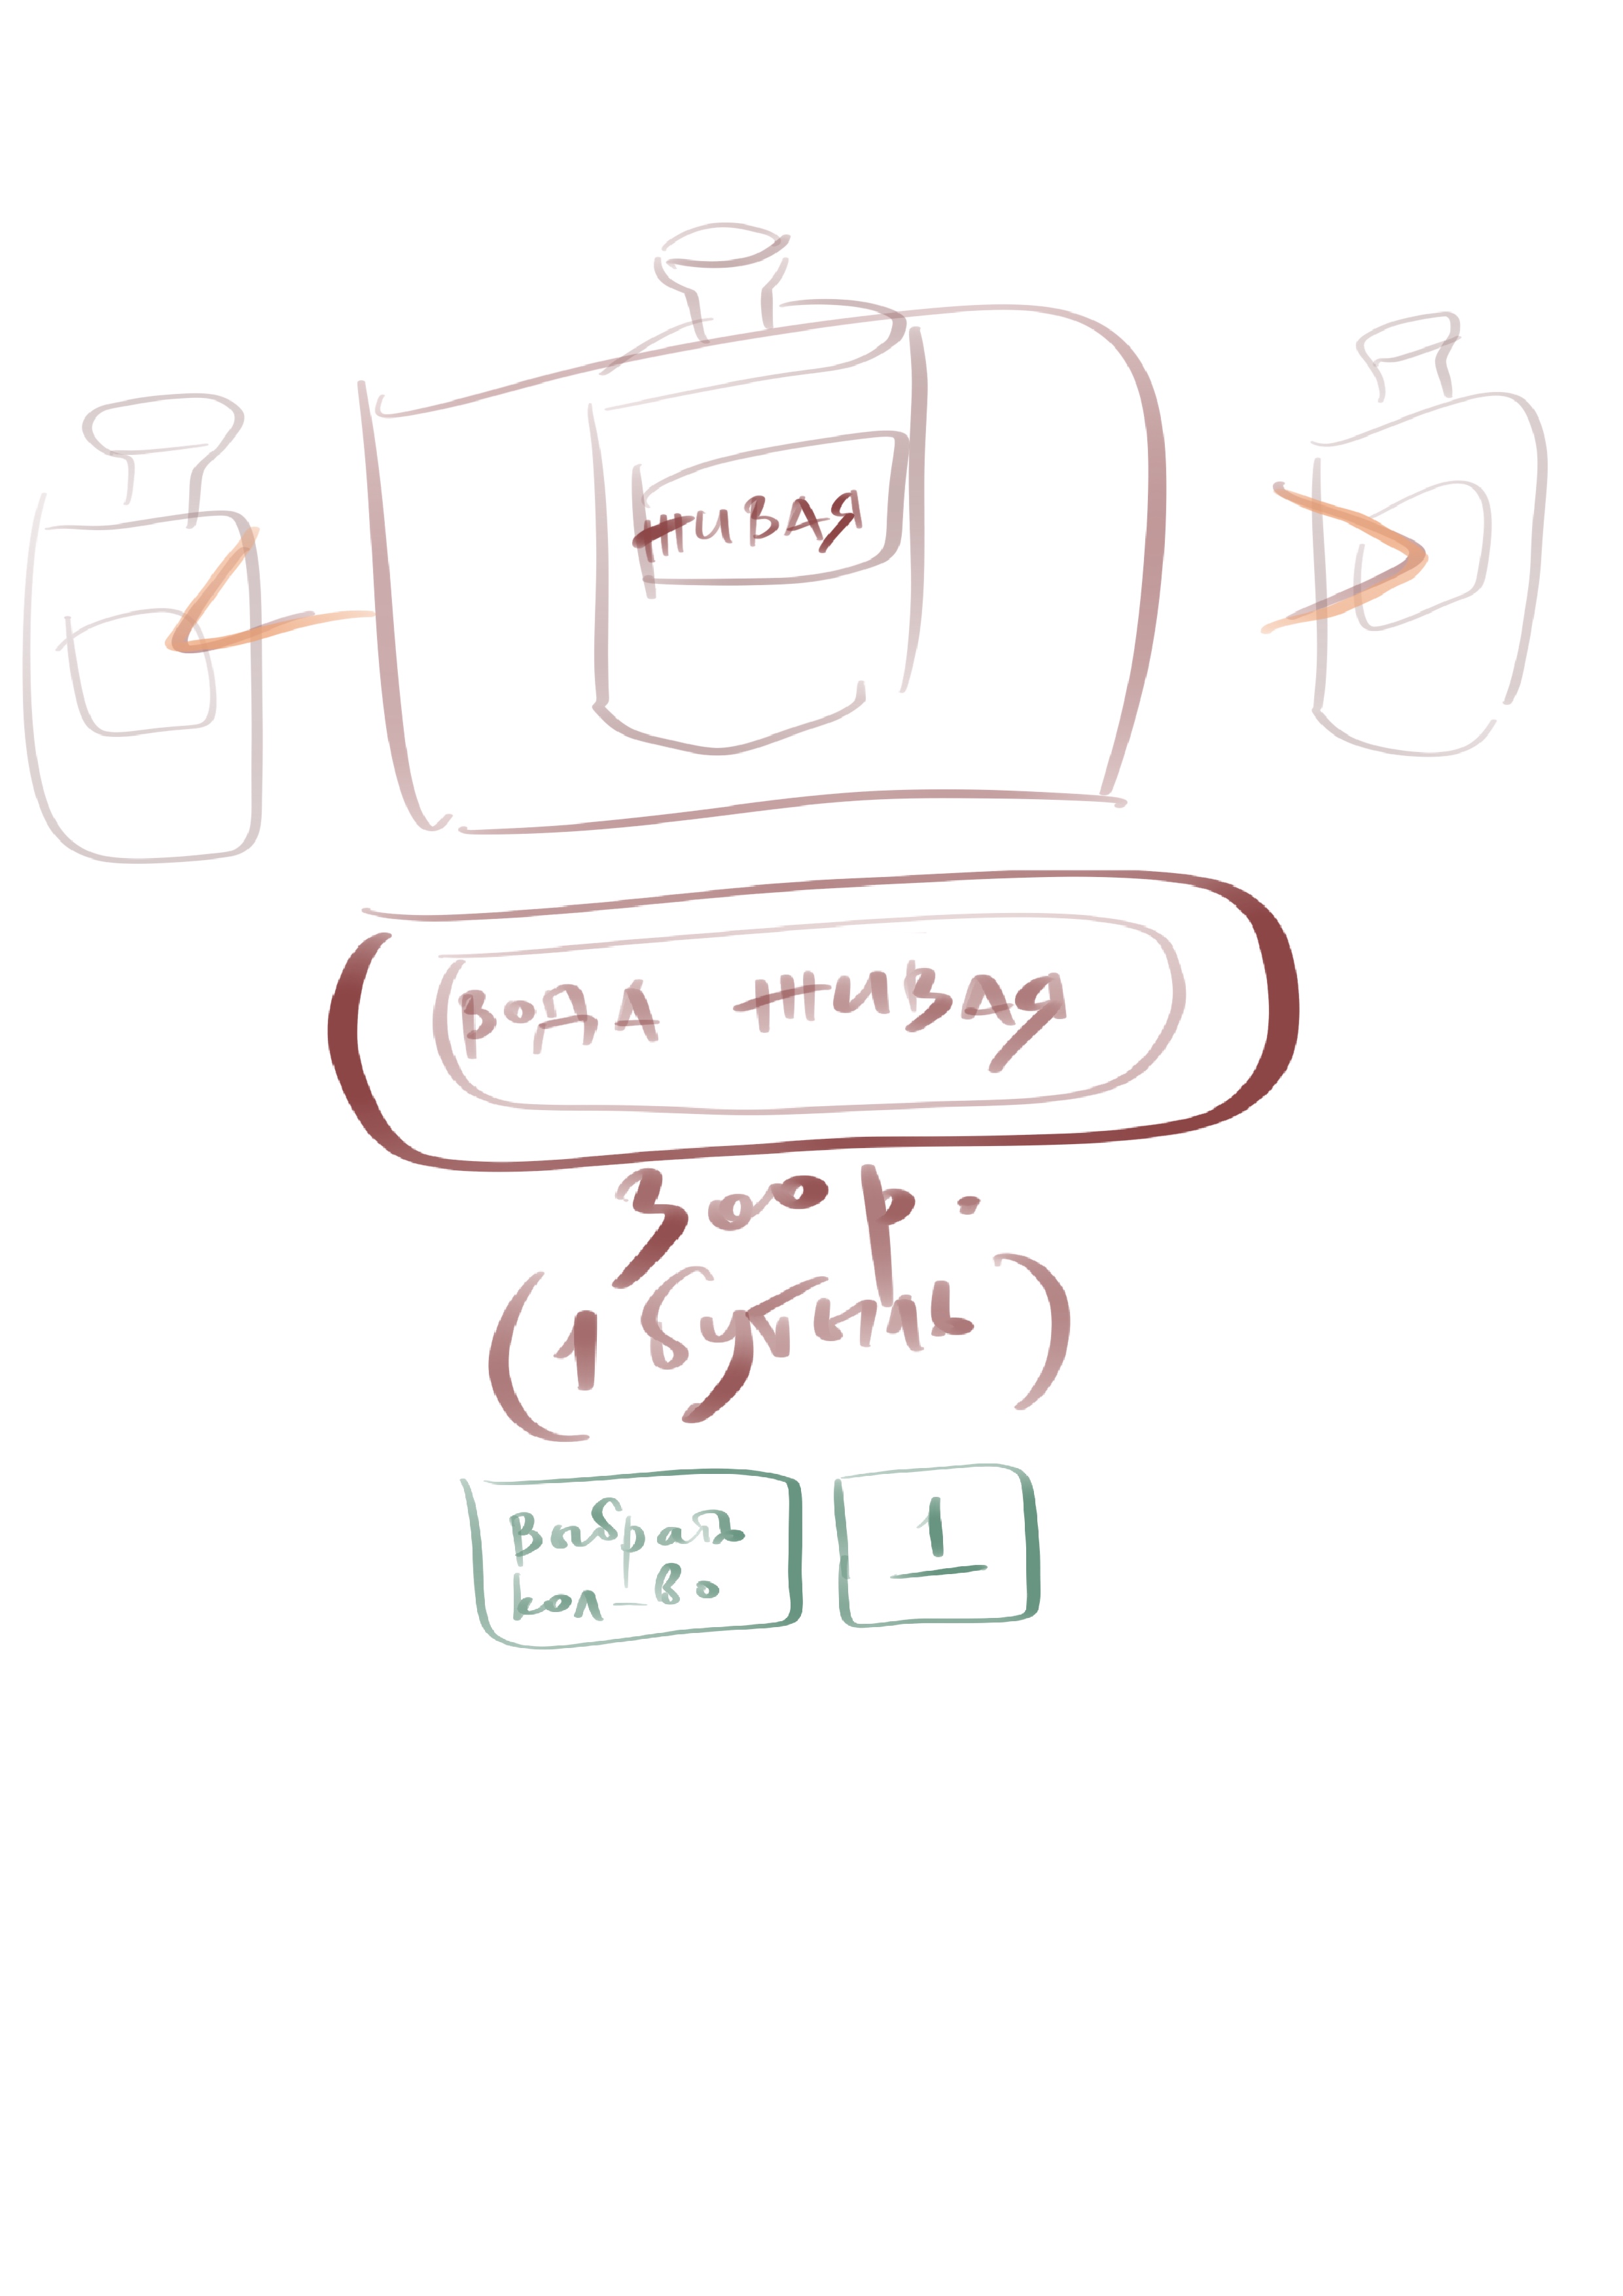 ЖИВАЯ
ВОДА ЖИВАЯ
300р.
(1 бутыль)
выбрать
кол-во
1